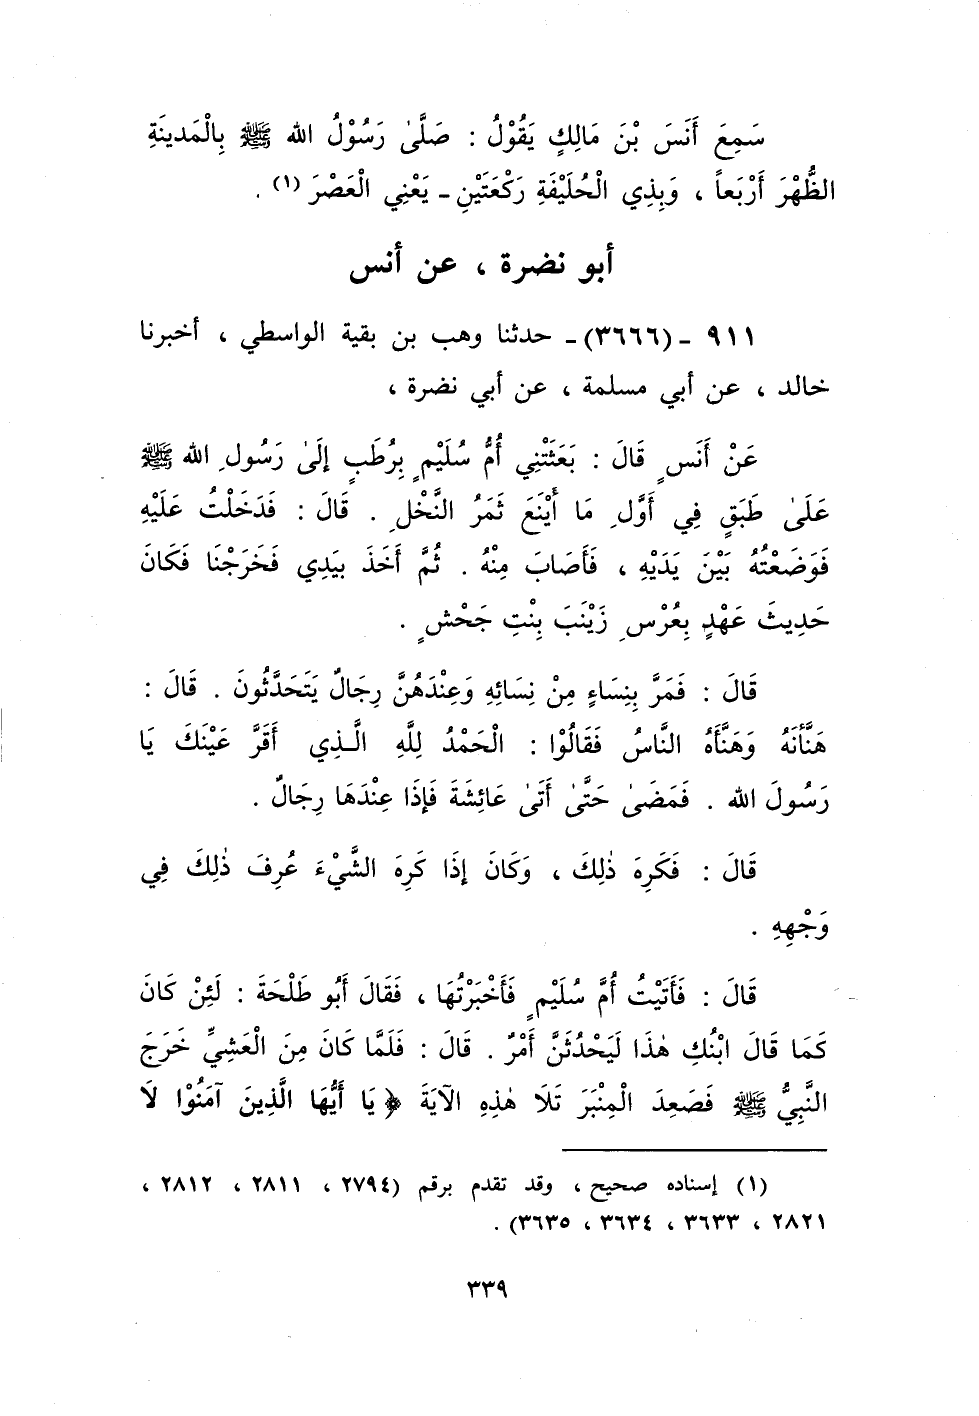 سَمِعَ أَنَسَ بْنَ مَالِكٍ يَقُوْلُ : صَلَّىٰ رَسُوْلُ الله ﷺ بِالْمَدينَةِ
الظُّهْرَ أَرْبَعاً ، وَبِذِي الْحُلَيْفَةِ رَكْعَتَيْنِ - يَعْنِي الْعَصْرَ (١) .
أبو نضرة ، عن أنس
٩١١ - (٣٦٦٦) - حدثنا وهب بن بقية الواسطي ، أخبرنا
خالد ، عن أبي مسلمة ، عن أبي نضرة ،
عَنْ أَنَسٍ قَالَ : بَعَثَتْنِي أُمُّ سُلَيْمٍ بِرُطَبٍ إِلَىٰ رَسُولِ الله ﷺ
عَلَىٰ طَبَقٍ فِي أَوَّلِ مَا أَيْنَعَ ثَمَرُ النَّخْلِ . قَالَ : فَدَخَلْتُ عَلَيْهِ
فَوَضَعْتُهُ بَيْنَ يَدَيْهِ ، فَأَصَابَ مِنْهُ . ثُمَّ أَخَذَ بيَدِي فَخَرَجْنَا فَكَانَ
حَدِيثَ عَهْدٍ بِعُرْسِ زَيْنَبَ بِنْتِ جَحْشٍ .
قَالَ : فَمَرَّ بِنِسَاءٍ مِنْ نِسَائِهِ وَعِنْدَهُنَّ رِجَالٌ يَتَحَدَّثُونَ . قَالَ :
هَنَّأنَهُ وَهَنَّأَهُ النَّاسُ فَقَالُوْا : الْحَمْدُ لِلَّهِ الَّذِي أَقَرَّ عَيْنَكَ يَا
رَسُولَ الله . فَمَضَىٰ حَتَّىٰ أَتَىٰ عَائِشَةَ فَإِذَا عِنْدَهَا رِجَالٌ .
قَالَ : فَكَرِهَ ذٰلِكَ ، وَكَانَ إِذَا كَرِهَ الشَّيْءَ عُرِفَ ذٰلِكَ فِي
وَجْهِهِ .
قَالَ : فَأَتَيْتُ أُمَّ سُلَيْمٍ فَأَخْبَرْتُهَا ، فَقَالَ أَبُو طَلْحَةَ : لَئِنْ كَانَ
كَمَا قَالَ ابْنُكِ هٰذَا لَيَحْدُثَنَّ أَمْرٌ . قَالَ : فَلَمَّا كَانَ مِنَ الْعَشِيِّ خَرَجَ
النَّبِيُّ ﷺ فَصَعِدَ الْمِنْبَرَ تَلَا هٰذِهِ الآيَةَ ﴿ يَا أَيُّهَا الَّذِينَ آمَنُوْا لَا
(١) إسناده صحيح ، وقد تقدم برقم (٢٧٩٤ ، ٢٨١١ ، ٢٨١٢ ،
٢٨٢١ ، ٣٦٣٣ ، ٣٦٣٤ ، ٣٦٣٥) .
٣٣٩